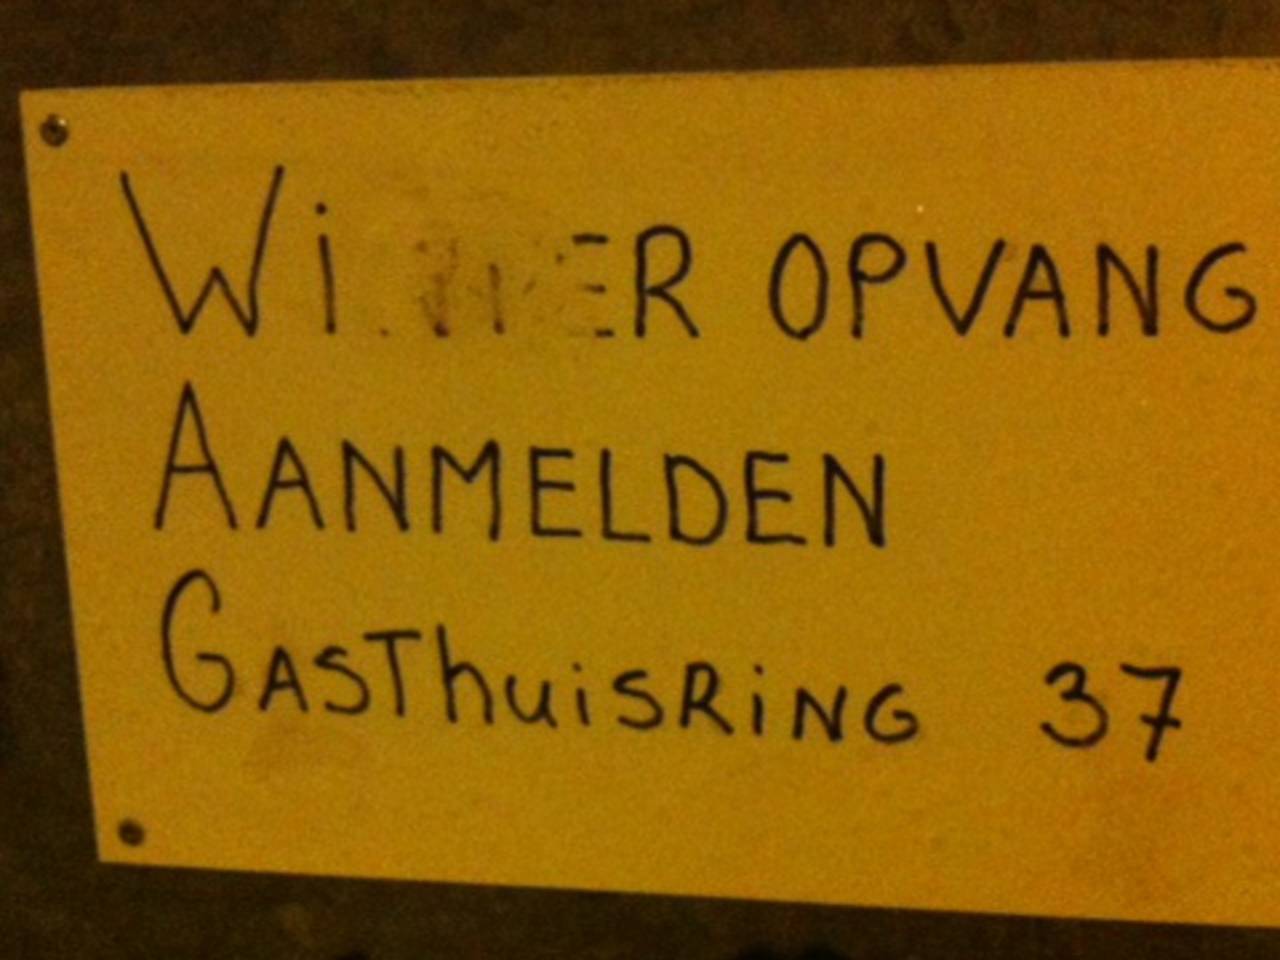 OPVANG
AANMELDEN
GASThuisRiNG 37